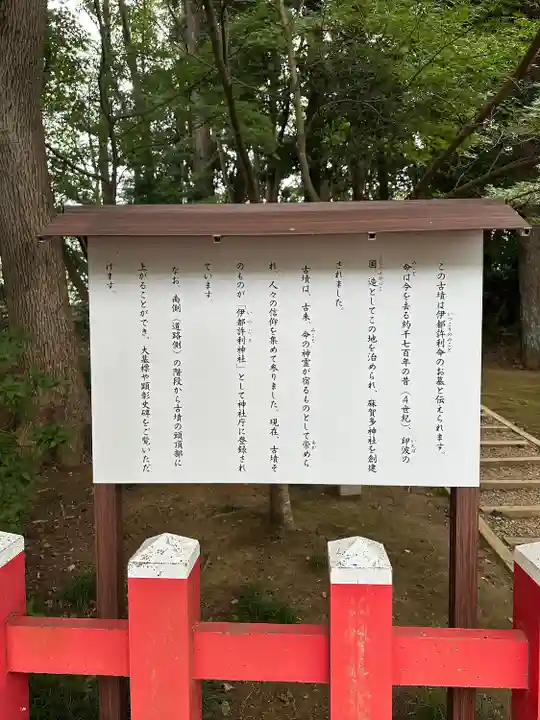 この古墳は伊都許利命のお墓と伝えられます。
命は今を去る約千七百年の昔(4世紀)、印波の
国造としてこの地を治められ、麻賀多神社を創建
されました。
古墳は、古来、命の神霊が宿るものとして崇めら
れ、人々の信仰を集めて参りました。現在、古墳そ
のものが「伊都許利神社」として神社庁に登録され
ています。
なお、南側(道路側)の階段から古墳の頭頂部に
上がることができ、大墓標や顕彰史碑をご覧いただ
けます。